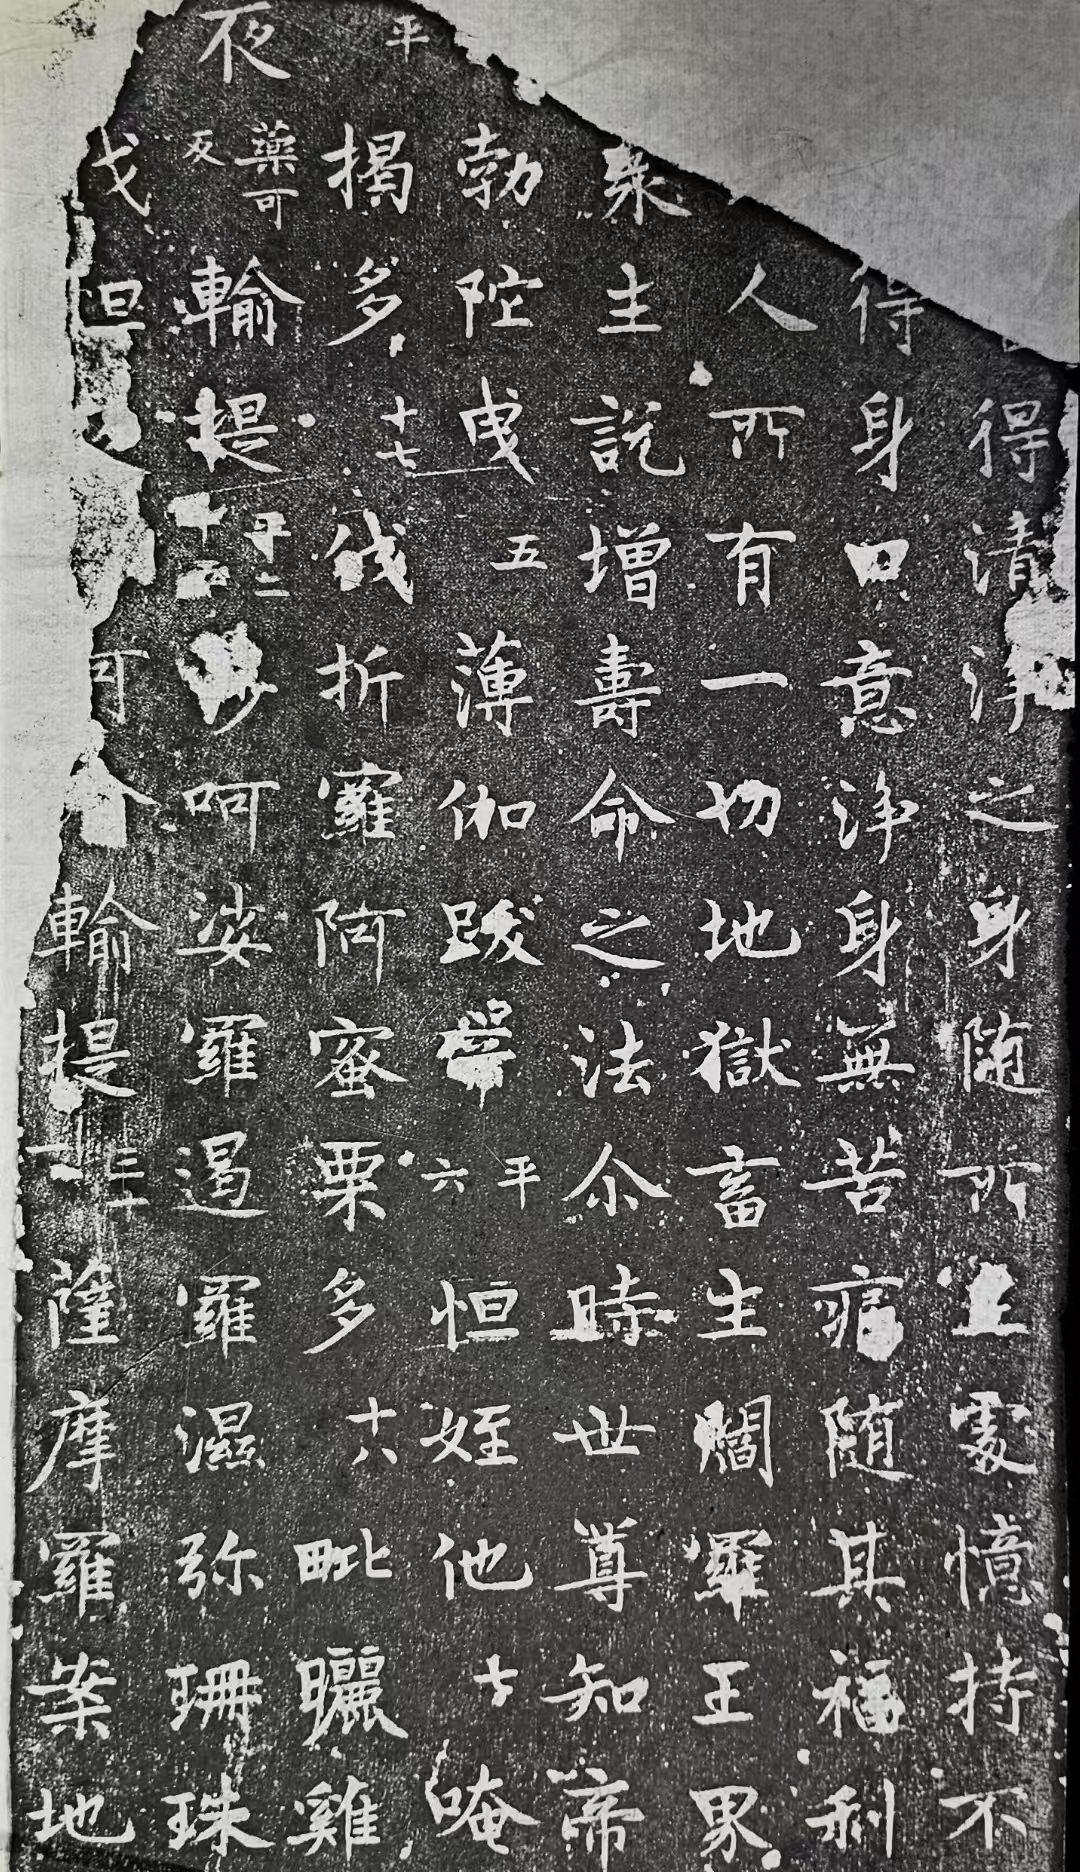 得清淨之身随所生處憶持不
得身口意净身無苦痛随其福利
人所有一切地獄畜生閻羅王界
衆生說增壽命之法尒時世尊知帝
勃陀曳五薄伽跋帝平六怛姪他七唵
平揭多十七伐折羅阿蜜栗多十八毗曬雞
夜藥可反輸提平二十四娑羅遏羅濕弥珊珠
輸提薩摩羅案地